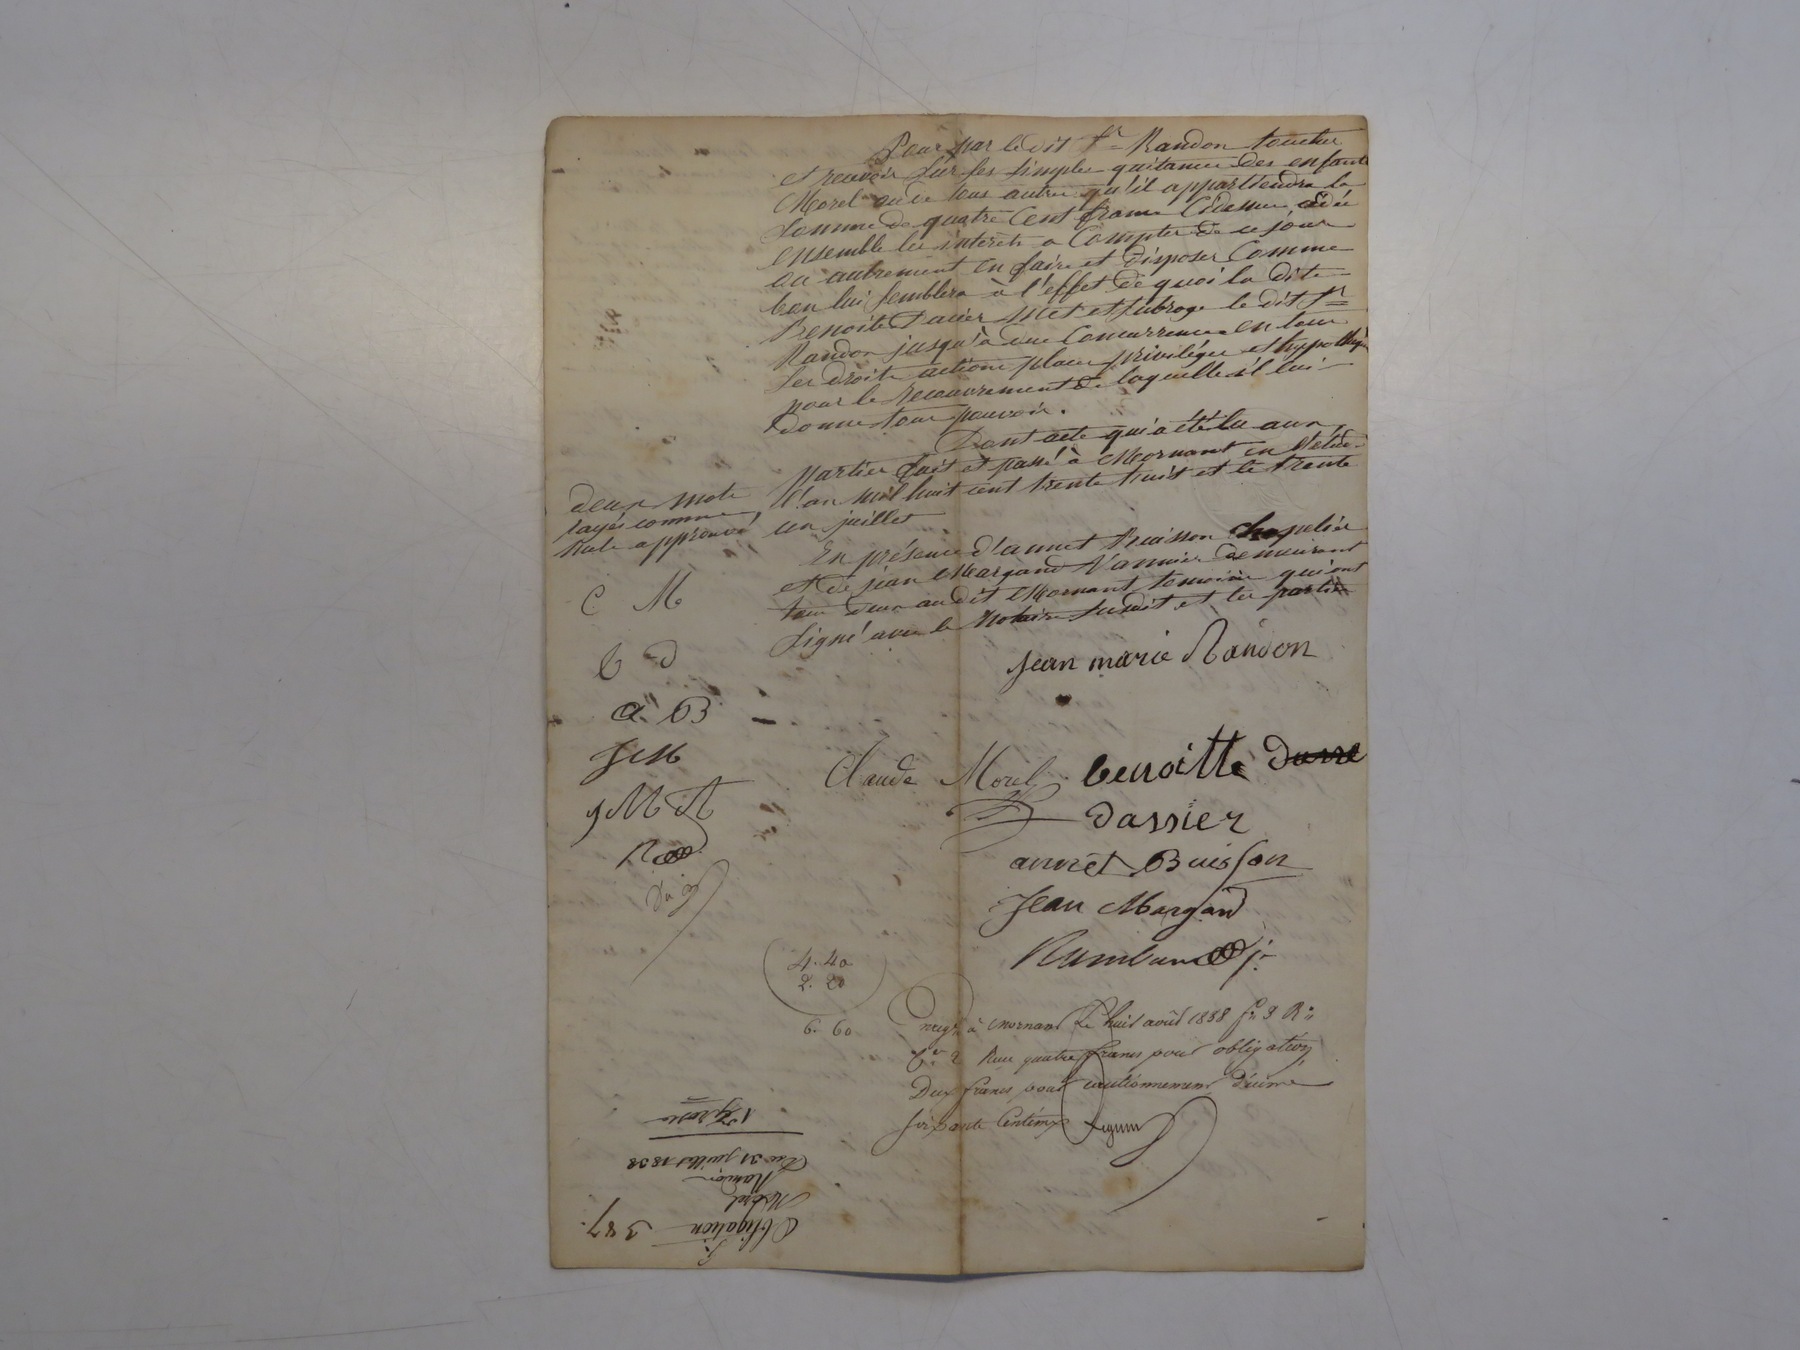 Pour par le dit Sr Randon toucher
et recevoir sur ses simples quitance des enfants
Morel ou de tous autre qu'il appartiendra la
somme de quatre cent franc Cidessus cédée
ensemble les intérêts a Compter de ce jour
ou autrement en faire et disposer Comme
bon lui semblera à l'effet de quoi la dite
Benoite met et subroge le dit Sr
Randon jusqu'à due Concurrence en tous
ses droits actions places privilèges et hypothèq
pour le recouvrement de laquelle il lui
donne tous pouvoir.
Dont acte qui a été lu aux
parties fait et passé à Mornant en l'étude
l'an mil huit cent trente huit et le trente
un juillet
En présence d'annet Buisson chapelier
et de jean Margand Vannier demeurant
tous deux audit Mornant temoins qui ont
signé avec le Notaire susdit et les parties
deux mots
rayés comme
nuls approuvé
C M
b d
a. B
J M
J M R
Jean marie Randon
Claude Morel benoitte
dassier
annet Buisson
Jean Margand
4. 40
2. 20
6. 60
Enregtré à Mornant Le huit août 1838 fo 9 Ro
Cer 2 Reçu quatre francs pour obligation
Deux francs pour cautionnement Décime
soixante Centimes
387.
Obligation
Morel
Randon
Du 31 juillet 1838
1re grosse